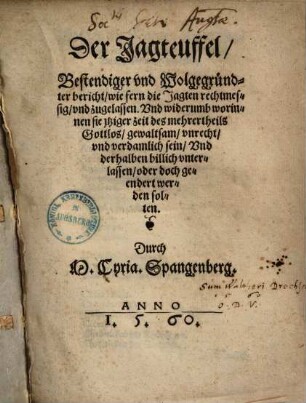 Soctis Jesu Augtæ.
Der Jagteuffel/
Bestendiger vnd Wolgegründ-
ter bericht/ wie fern die Jagten rechtmes-
sig/ vnd zugelassen. Vnd widerumb worin-
nen sie ytziger zeit des mehrertheils
Gottlos/ gewaltsam/ vnrecht/
vnd verdamlich sein/ Vnd
derhalben billich vnter-
lassen/ oder doch ge-
endert wer-
den sol-
ten.
Durch
M. Cyria. Spangenberg.
ANNO
1. 5. 60.
Sum